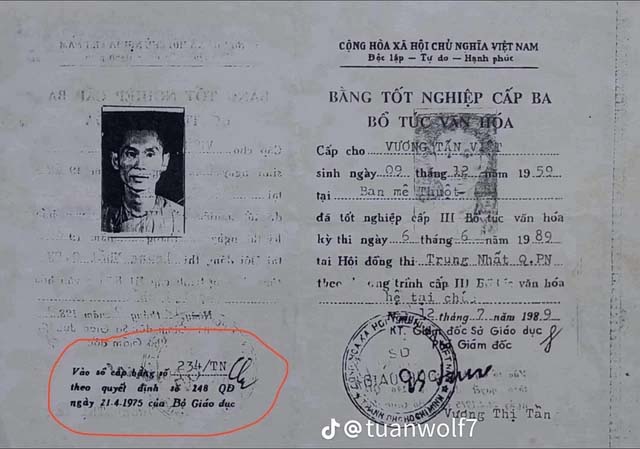 CỘNG HÒA XÃ HỘI CHỦ NGHĨA VIỆT NAM
Độc lập — Tự do — Hạnh phúc
BẰNG TỐT NGHIỆP CẤP BA
BỔ TÚC VĂN HÓA
Cấp cho VƯƠNG TẤN VIỆT
sinh ngày 09 tháng 12 năm 1959
tại Ban mê Thuột
đã tốt nghiệp cấp III Bổ túc văn hóa
kỳ thi ngày 6 tháng 6 năm 1989
tại Hội đồng thi Trung Nhất Q.PN
theo chương trình cấp III Bổ túc văn hóa
hệ tại chức
12 tháng 7 năm 1989
KT. Giám đốc Sở Giáo dục
Phó Giám đốc
SỞ
GIÁO DỤC
THÀNH PHỐ HỒ CHÍ MINH
Vương Thị Tần
Vào sổ cấp bằng số 234/TN
theo quyết định số 248 QĐ
ngày 21.4.1975 của Bộ Giáo dục
@tuanwolf7